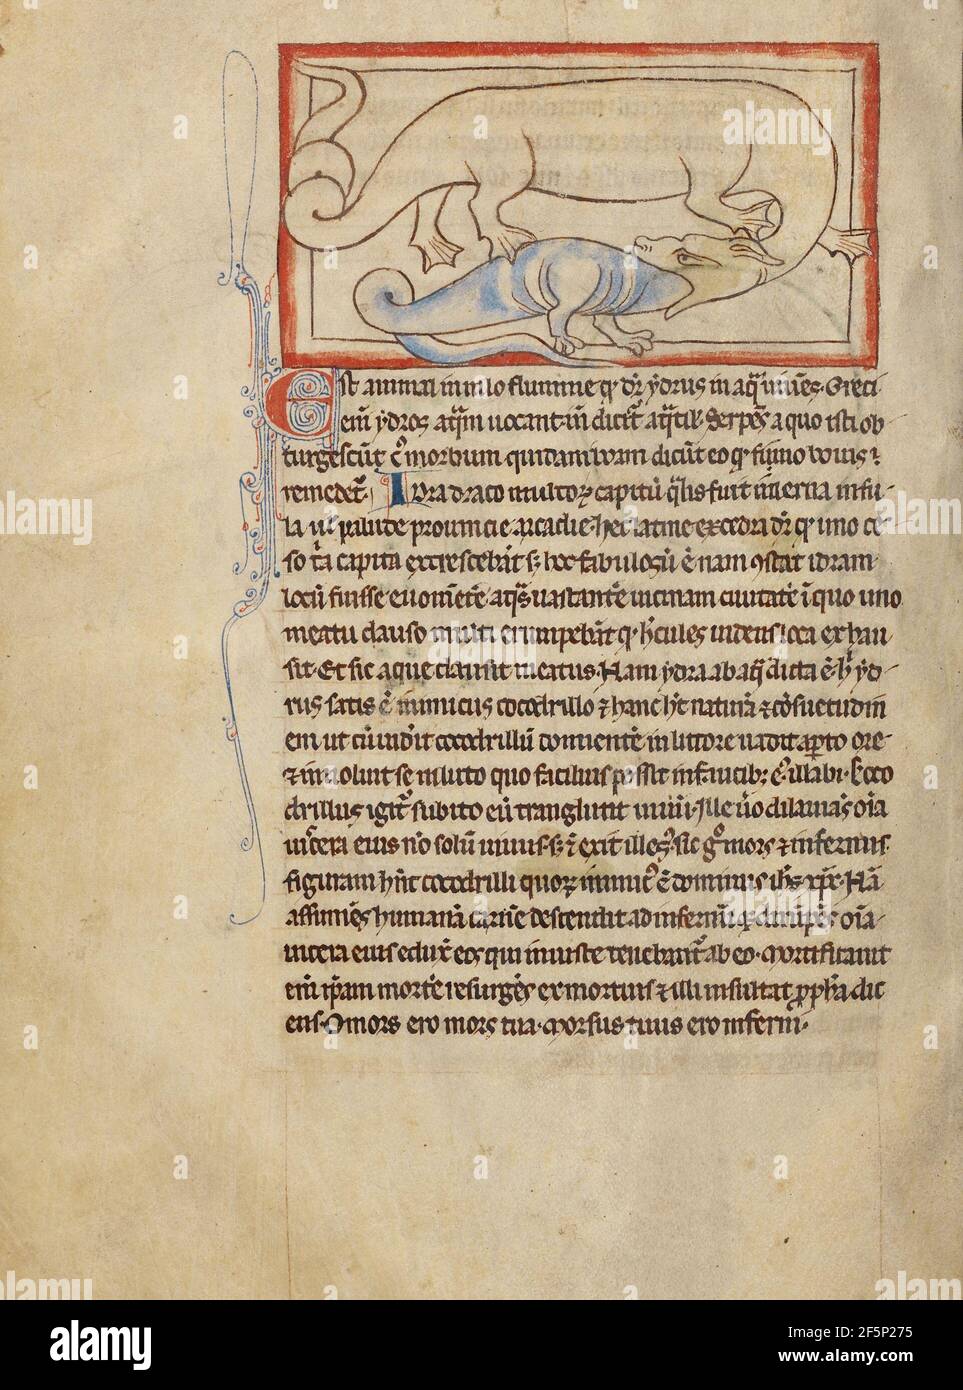 Est animal in nilo flumine q̄ dr̄ ydrus in aq̄ uiuēs. Greci
em̄ ydros aq̄m uocant. in̄ dicit̄ aq̄til' serpēs a quo icti ob
turgescūt c' morbum quidam boam dicūt eo q' fimo bouis
remedet̄. Idra draco multoꝝ capitū q̄lis fuit in lerna infu
la ul' palude prouincie arcadie. hec latine excedra dr̄ q' uno ce
so tria capita excrescebāt s; hoc fabulosū ē nam ɔstat idram
locū fuisse euomētē aq̄s uastantē uicinam ciuitatē ī quo uno
meatu clauso multi erumpebāt q' h'cules uidens loca exhau
sit. Et sic aque clausit meatus. Nam ydra ab aq̄ dicta ē. h' yd
rus satis ē inimicus cocodrillo & hanc h't naturā & cōsuetudin
em ut cū uid'it cocodrillū dormientē in littore uadit aꝑto ore
& inuoluit se in luto quo facilius possit in faucib; ei' illabi. Coco
drillus igit' subito eū transglutit uiuū. Ille u'o dilanians oīa
uiscera eius nō solū uiuus s; & exit illesus. sic g° mors & infernus
figuram hn̄t cocodrilli quoꝝ inimic' ē dominus ih̄s xp̄c. Nā
assumēs humanā carnē descendit ad infernū & dirūpēs oīa
uiscera eius eduxit eos qui iniuste tenebant̄ ab eo. Mortificauit
em̄ ip̄am mortē resurgēs ex mortuis & illi insultat ꝓph'a dic
ens. O mors ero mors tua. Morsus tuus ero inferni.
alamy
Image ID: 2F5P275
www.alamy.com